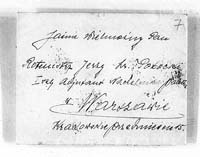 7
Jaśnie Wielmożny Pan
Rotmistrz Jerzy hr. Potocki
Adjutant
w Warszawie
Krakowskie Przedmieście